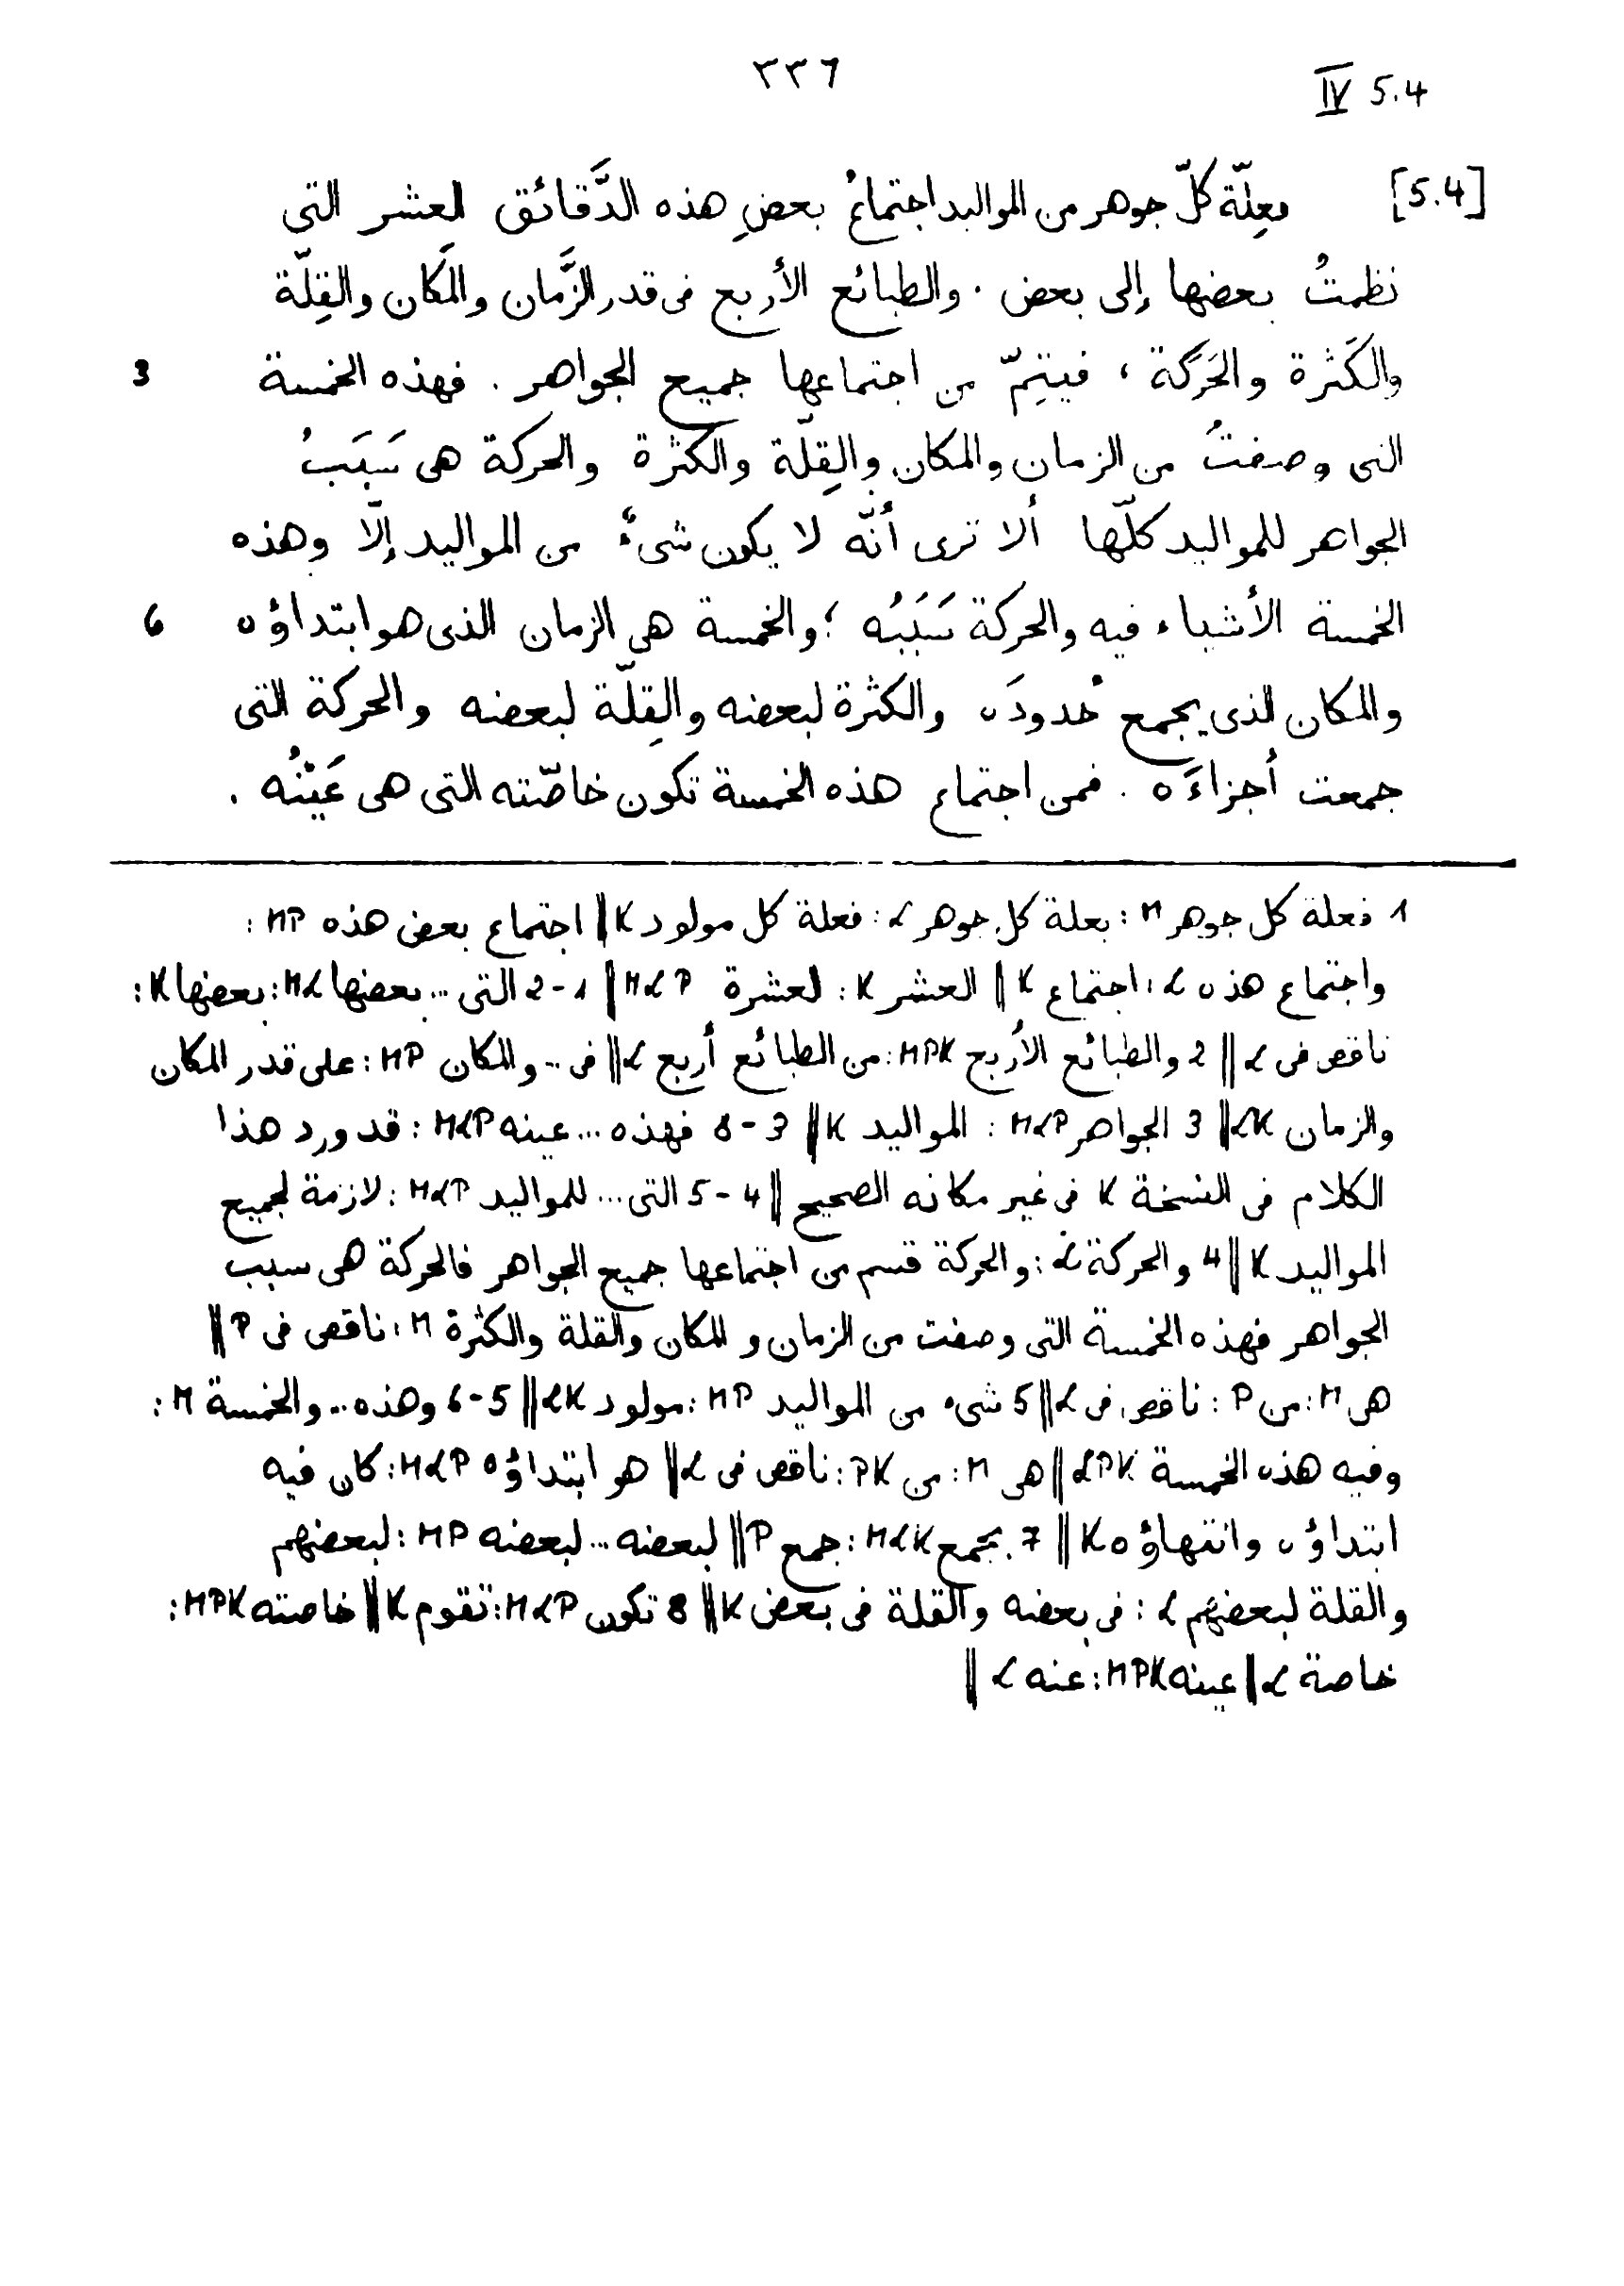 ٣٣٦
IV 5.4
[5.4] فعِلّة كلّ جوهر من المواليد اجتماعُ بعضِ هذه الدَّقائق العشر التى
نظمتُ بعضها إلى بعض . والطبائع الأربع فى قدر الزَّمان والمَكان والقِلّة
والكَثرة والحَرَكة ، فيتِمّ من اجتماعها جميع الجواهر . فهذه الخمسة 3
التى وصفتُ من الزمان والمكان والقِلّة والكثرة والحركة هى سَبَبُ
الجواهر للمواليد كلّها ألا ترى أنّه لا يكون شىءٌ من المواليد إلّا وهذه
الخمسة الأشياء فيه والحركة سَبَبُه ؛ والخمسة هى الزمان الذى هو ابتداؤه 6
والمكان الذى يجمع حُدودَه والكثرة لبعضه والقِلّة لبعضه والحركة التى
جمعت أجزاءَه . فمن اجتماع هذه الخمسة تكون خاصّته التى هى عَيْنُه .
1 فعلة كل جوهر M : بعلة كل جوهر L : فعلة كل مولود K || اجتماع بعض هذه MP :
واجتماع هذه L : اجتماع K || العشر K : لعشرة MLP || 1-2 التى ... بعضها ML : بعضها K :
ناقص فى L || 2 والطبائع الأربع MPK : من الطبائع أربع L || فى ... والمكان MP : على قدر المكان
والزمان LK || 3 الجواهر MLP : المواليد K || 3-8 فهذه ... عينه MLP : قد ورد هذا
الكلام فى النسخة K فى غير مكانه الصحيح || 4-5 التى ... للمواليد MLP : لازمة لجميع
المواليد K || 4 والحركة L : والحركة قسم من اجتماعها جميع الجواهر فالحركة هى سبب
الجواهر فهذه الخمسة التى وصفت من الزمان و المكان والقلة والكثرة M : ناقص فى P ||
هى M : من P : ناقص فى L || 5 شىء من المواليد MP : مولود LK || 5-6 وهذه ... والخمسة M :
وفيه هذه الخمسة LPK || هى M : من PK : ناقص فى L || هو ابتداؤه MLP : كان فيه
ابتداؤه وانتهاؤه K || 7 يجمع MLK : جمع P || لبعضه ... لبعضه MP : لبعضهم
والقلة لبعضهم L : فى بعضه والقلة فى بعض K || 8 تكون MLP : تقوم K || خاصته MPK :
خاصة L || عينه MPK : عنه L ||